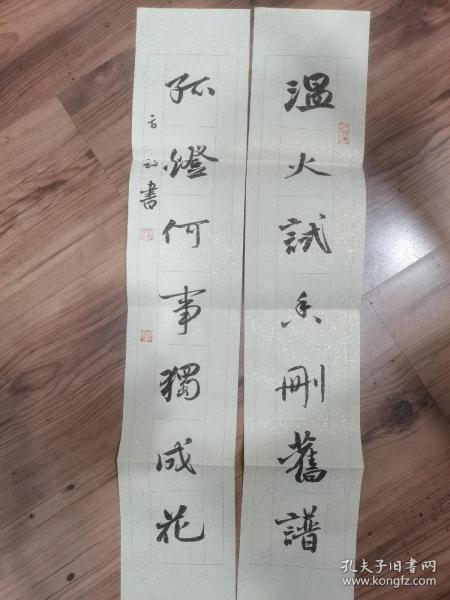 溫火試香刪舊譜
孤燈何事獨成花
書
孔夫子旧书网
www.kongfz.com